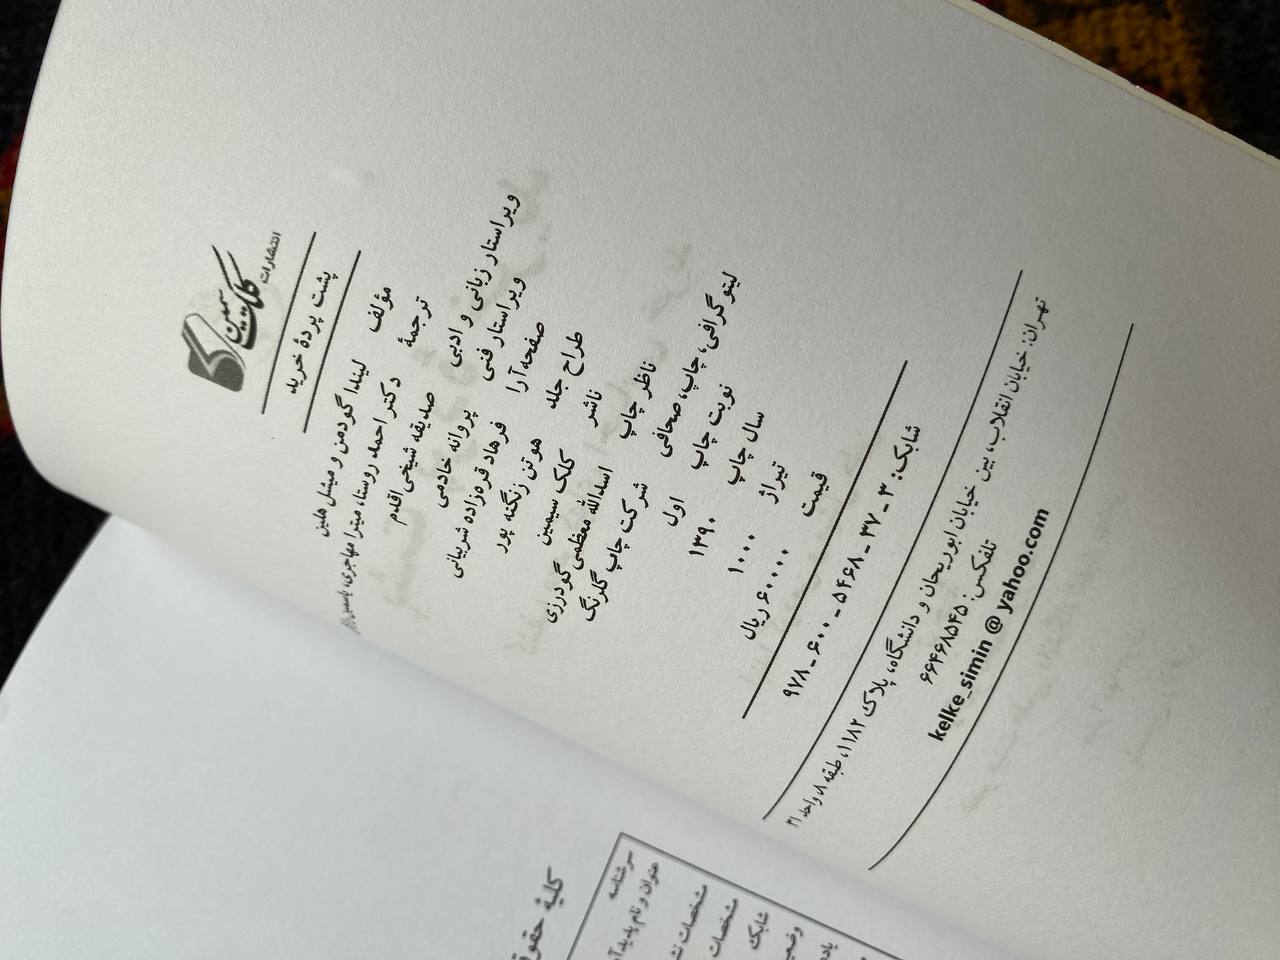 انتشارات
کلک سیمین
پشت پردهٔ خرید
مؤلف لیندا گودمن و میشل هلین
ترجمهٔ دکتر احمد روستا، میترا مهاجری،
صدیقه شیخی اقدم
ویراستار زبانی و ادبی پروانه خادمی
ویراستار فنی فرهاد قره‌زاده شربیانی
صفحه‌آرا هوتن زنگنه پور
طراح جلد
ناشر کلک سیمین
ناظر چاپ اسدالله معظمی گودرزی
لیتوگرافی، چاپ، صحافی شرکت چاپ گلرنگ
نوبت چاپ اول
سال چاپ ۱۳۹۰
تیراژ ۱۰۰۰
قیمت ۶۰۰۰۰ ریال
شابک: ۳ - ۳۷ - ۵۴۶۸ - ۶۰۰ - ۹۷۸
تهران: خیابان انقلاب، بین خیابان ابوریحان و دانشگاه، پلاک ۱۱۸۲، طبقه ۸، واحد ۳۱
تلفکس: ۶۶۴۶۸۵۴۵
kelke_simin @ yahoo.com
کلیهٔ حقوق
سرشناسه
عنوان و نام پدیدآ
مشخصات نش
مشخصات
شابک